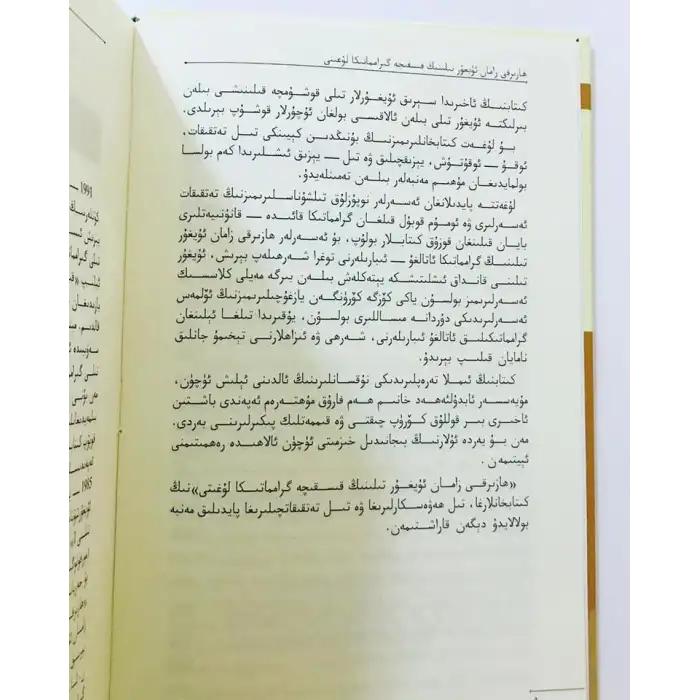 ھازىرقى زامان ئۇيغۇر تىلىنىڭ قىسقىچە گىرامماتىكا لۇغىتى
كىتابنىڭ ئاخىرىدا سېرىق ئۇيغۇرلار تىلى قوشۇمچە قىلىنىشى بىلەن
بىرلىكتە ئۇيغۇر تىلى بىلەن ئالاقىسى بولغان ئۇچۇرلار قوشۇپ بېرىلدى.
بۇ لۇغەت كىتابخانلىرىمىزنىڭ بۇنىڭدىن كېيىنكى تىل تەتقىقات،
ئوقۇ — ئوقۇتۇش، يېزىقچىلىق ۋە تىل — يېزىق ئىشلىرىدا كەم بولسا
بولمايدىغان مۇھىم مەنبەلەر بىلەن تەمىنلەيدۇ.
لۇغەتتە پايدىلانغان ئەسەرلەر نوپۇزلۇق تىلشۇناسلىرىمىزنىڭ تەتقىقات
ئەسەرلىرى ۋە ئومۇم قوبۇل قىلغان گرامماتىكا قائىدە — قانۇنىيەتلىرى
بايان قىلىنغان قوزۇق كىتابلار بولۇپ، بۇ ئەسەرلەر ھازىرقى زامان ئۇيغۇر
تىلىنىڭ گرامماتىكا ئاتالغۇ — ئىبارىلەرنى توغرا شەرھىلەپ بېرىش، ئۇيغۇر
تىلىنى قانداق ئىشلىتىشكە يېتەكلەش بىلەن بىرگە مەيلى كلاسسىك
ئەسەرلىرىمىز بولسۇن ياكى كۆزگە كۆرۈنگەن يازغۇچىلىرىمىزنىڭ ئۆلمەس
ئەسەرلىرىدىكى دۇردانە مىساللىرى بولسۇن، يۇقىرىدا تىلغا ئېلىنغان
گرامماتىكىلىق ئاتالغۇ ئىبارىلەرنى، شەرھى ۋە ئىزاھلارنى تېخىمۇ جانلىق
نامايان قىلىپ بېرىدۇ.
كىتابنىڭ ئىملا تەرەپلىرىدىكى نۇقسانلىرىنىڭ ئالدىنى ئېلىش ئۈچۈن،
مۇيەسسەر ئابدۇلئەھەد خانىم ھەم فارۇق مۇھتەرەم ئەپەندى باشتىن
ئاخىر بىر قۇللۇق كۆرۈپ چىقتى ۋە قىممەتلىك پىكىرلىرىنى بەردى.
مەن بۇ يەردە ئۇلارنىڭ بىجانىدىل خىزمىتى ئۈچۈن ئالاھىدە رەھمىتىمنى
ئېيتىمەن.
«ھازىرقى زامان ئۇيغۇر تىلىنىڭ قىسقىچە گرامماتىكا لۇغىتى»نىڭ
كىتابخانلارغا، تىل ھەۋەسكارلىرىغا ۋە تىل تەتقىقاتچىلىرىغا پايدىلىق مەنبە
بولالايدۇ دېگەن قاراشتىمەن.
1991 —
1985 —